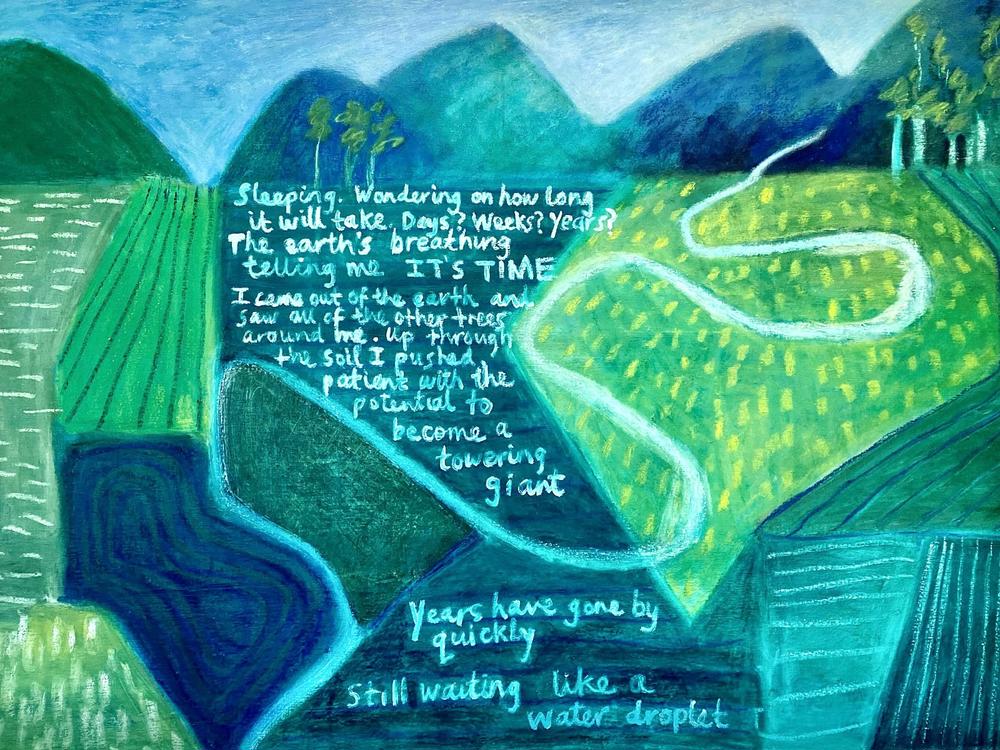 Sleeping. Wondering on how long
it will take. Days? Weeks? Years?
The earth's breathing
telling me IT'S TIME
I came out of the earth and
saw all of the other trees
around me. Up through
the soil I pushed,
patient with the
potential to
become a
towering
giant
Years have gone by
quickly
Still waiting like a
water droplet